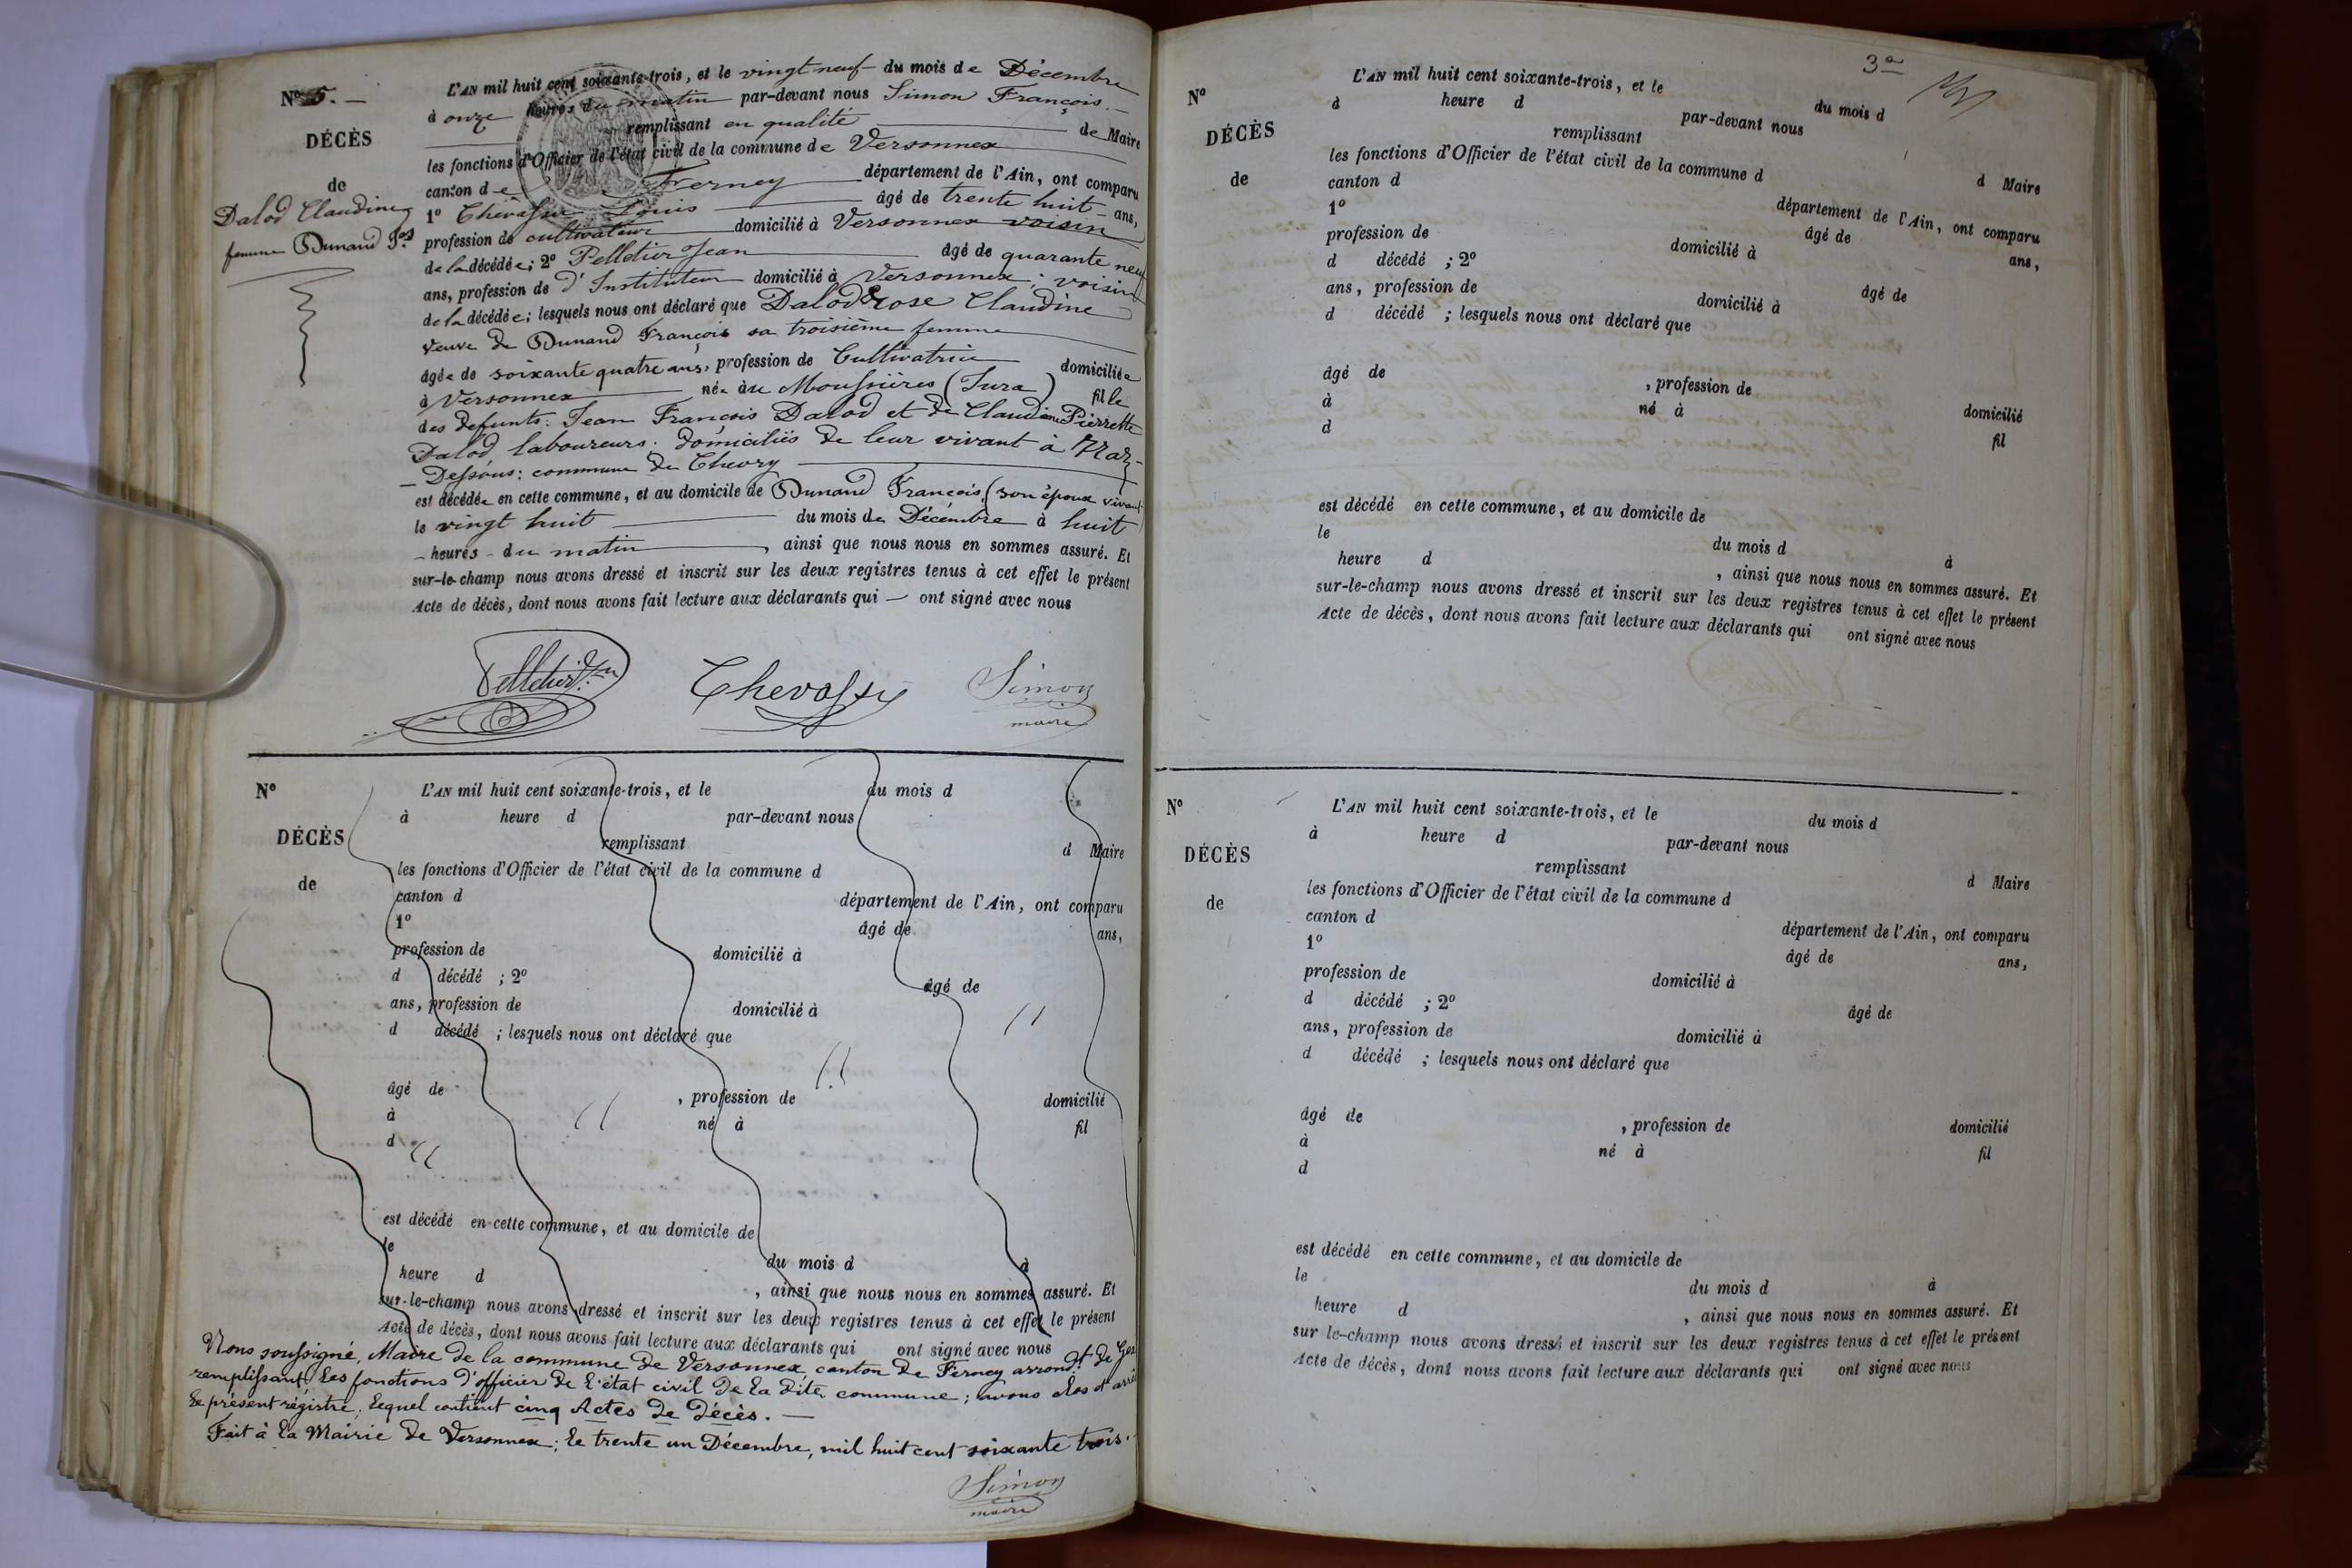 N° 5. —
DÉCÈS
de
Dalod Claudine
femme Dunand Fçois
L'AN mil huit cent soixante-trois, et le vingt neuf du mois de Décembre
à onze heures du matin par-devant nous Simon François
remplissant en qualité de Maire
les fonctions d'Officier de l'état civil de la commune de Versonnex
canton de Ferney département de l'Ain, ont comparu
1° Chevassu Louis âgé de trente huit ans,
profession de cultivateur domicilié à Versonnex voisin
de la décédée; 2° Pelletier Jean âgé de quarante neuf
ans, profession de d'Instituteur domicilié à Versonnex; voisin
de la décédée; lesquels nous ont déclaré que Dalod Rose Claudine
veuve de Dunand François sa troisième femme
âgée de soixante quatre ans, profession de Cultivatrice domiciliée
à Versonnex née à Moussières (Jura) fille
des defunts: Jean François Dalod et de Claudine Pierrette
Dalod laboureurs: domiciliés de leur vivant à
— Dessous: commune de Chevry
est décédée en cette commune, et au domicile de Dunand François, (son époux vivant
le vingt huit du mois de Décembre à huit
— heures — du matin, ainsi que nous nous en sommes assuré. Et
sur-le-champ nous avons dressé et inscrit sur les deux registres tenus à cet effet le présent
Acte de décès, dont nous avons fait lecture aux déclarants qui — ont signé avec nous
Pelletier Jean Chevassu Simon
maire
N°
DÉCÈS
de
L'AN mil huit cent soixante-trois, et le du mois d
à heure d par-devant nous
remplissant d Maire
les fonctions d'Officier de l'état civil de la commune d
canton d département de l'Ain, ont comparu
1° âgé de ans,
profession de domicilié à
d décédé ; 2° âgé de
ans, profession de domicilié à
d décédé ; lesquels nous ont déclaré que
âgé de , profession de domicilié
à né à fil
d
est décédé en cette commune, et au domicile de
le du mois d à
heure d , ainsi que nous nous en sommes assuré. Et
sur-le-champ nous avons dressé et inscrit sur les deux registres tenus à cet effet le présent
Acte de décès, dont nous avons fait lecture aux déclarants qui ont signé avec nous
Nous soussigné, Maire de la commune de Versonnex, canton de Ferney arrondt. de Gex
remplissant les fonctions d'officier de l'état civil de la dite commune; avons clos et arrêté
le présent régistre, lequel contient cinq Actes de décès. —
Fait à la Mairie de Versonnex; le trente un Décembre, mil huit cent soixante trois.
Simon
maire
3e
N°
DÉCÈS
de
L'AN mil huit cent soixante-trois, et le du mois d
à heure d par-devant nous
remplissant d Maire
les fonctions d'Officier de l'état civil de la commune d
canton d département de l'Ain, ont comparu
1° âgé de ans,
profession de domicilié à
d décédé ; 2° âgé de
ans, profession de domicilié à
d décédé ; lesquels nous ont déclaré que
âgé de , profession de domicilié
à né à fil
d
est décédé en cette commune, et au domicile de
le du mois d à
heure d , ainsi que nous nous en sommes assuré. Et
sur-le-champ nous avons dressé et inscrit sur les deux registres tenus à cet effet le présent
Acte de décès, dont nous avons fait lecture aux déclarants qui ont signé avec nous
N°
DÉCÈS
de
L'AN mil huit cent soixante-trois, et le du mois d
à heure d par-devant nous
remplissant d Maire
les fonctions d'Officier de l'état civil de la commune d
canton d département de l'Ain, ont comparu
1° âgé de ans,
profession de domicilié à
d décédé ; 2° âgé de
ans, profession de domicilié à
d décédé ; lesquels nous ont déclaré que
âgé de , profession de domicilié
à né à fil
d
est décédé en cette commune, et au domicile de
le du mois d à
heure d , ainsi que nous nous en sommes assuré. Et
sur le-champ nous avons dressé et inscrit sur les deux registres tenus à cet effet le présent
Acte de décès, dont nous avons fait lecture aux déclarants qui ont signé avec nous